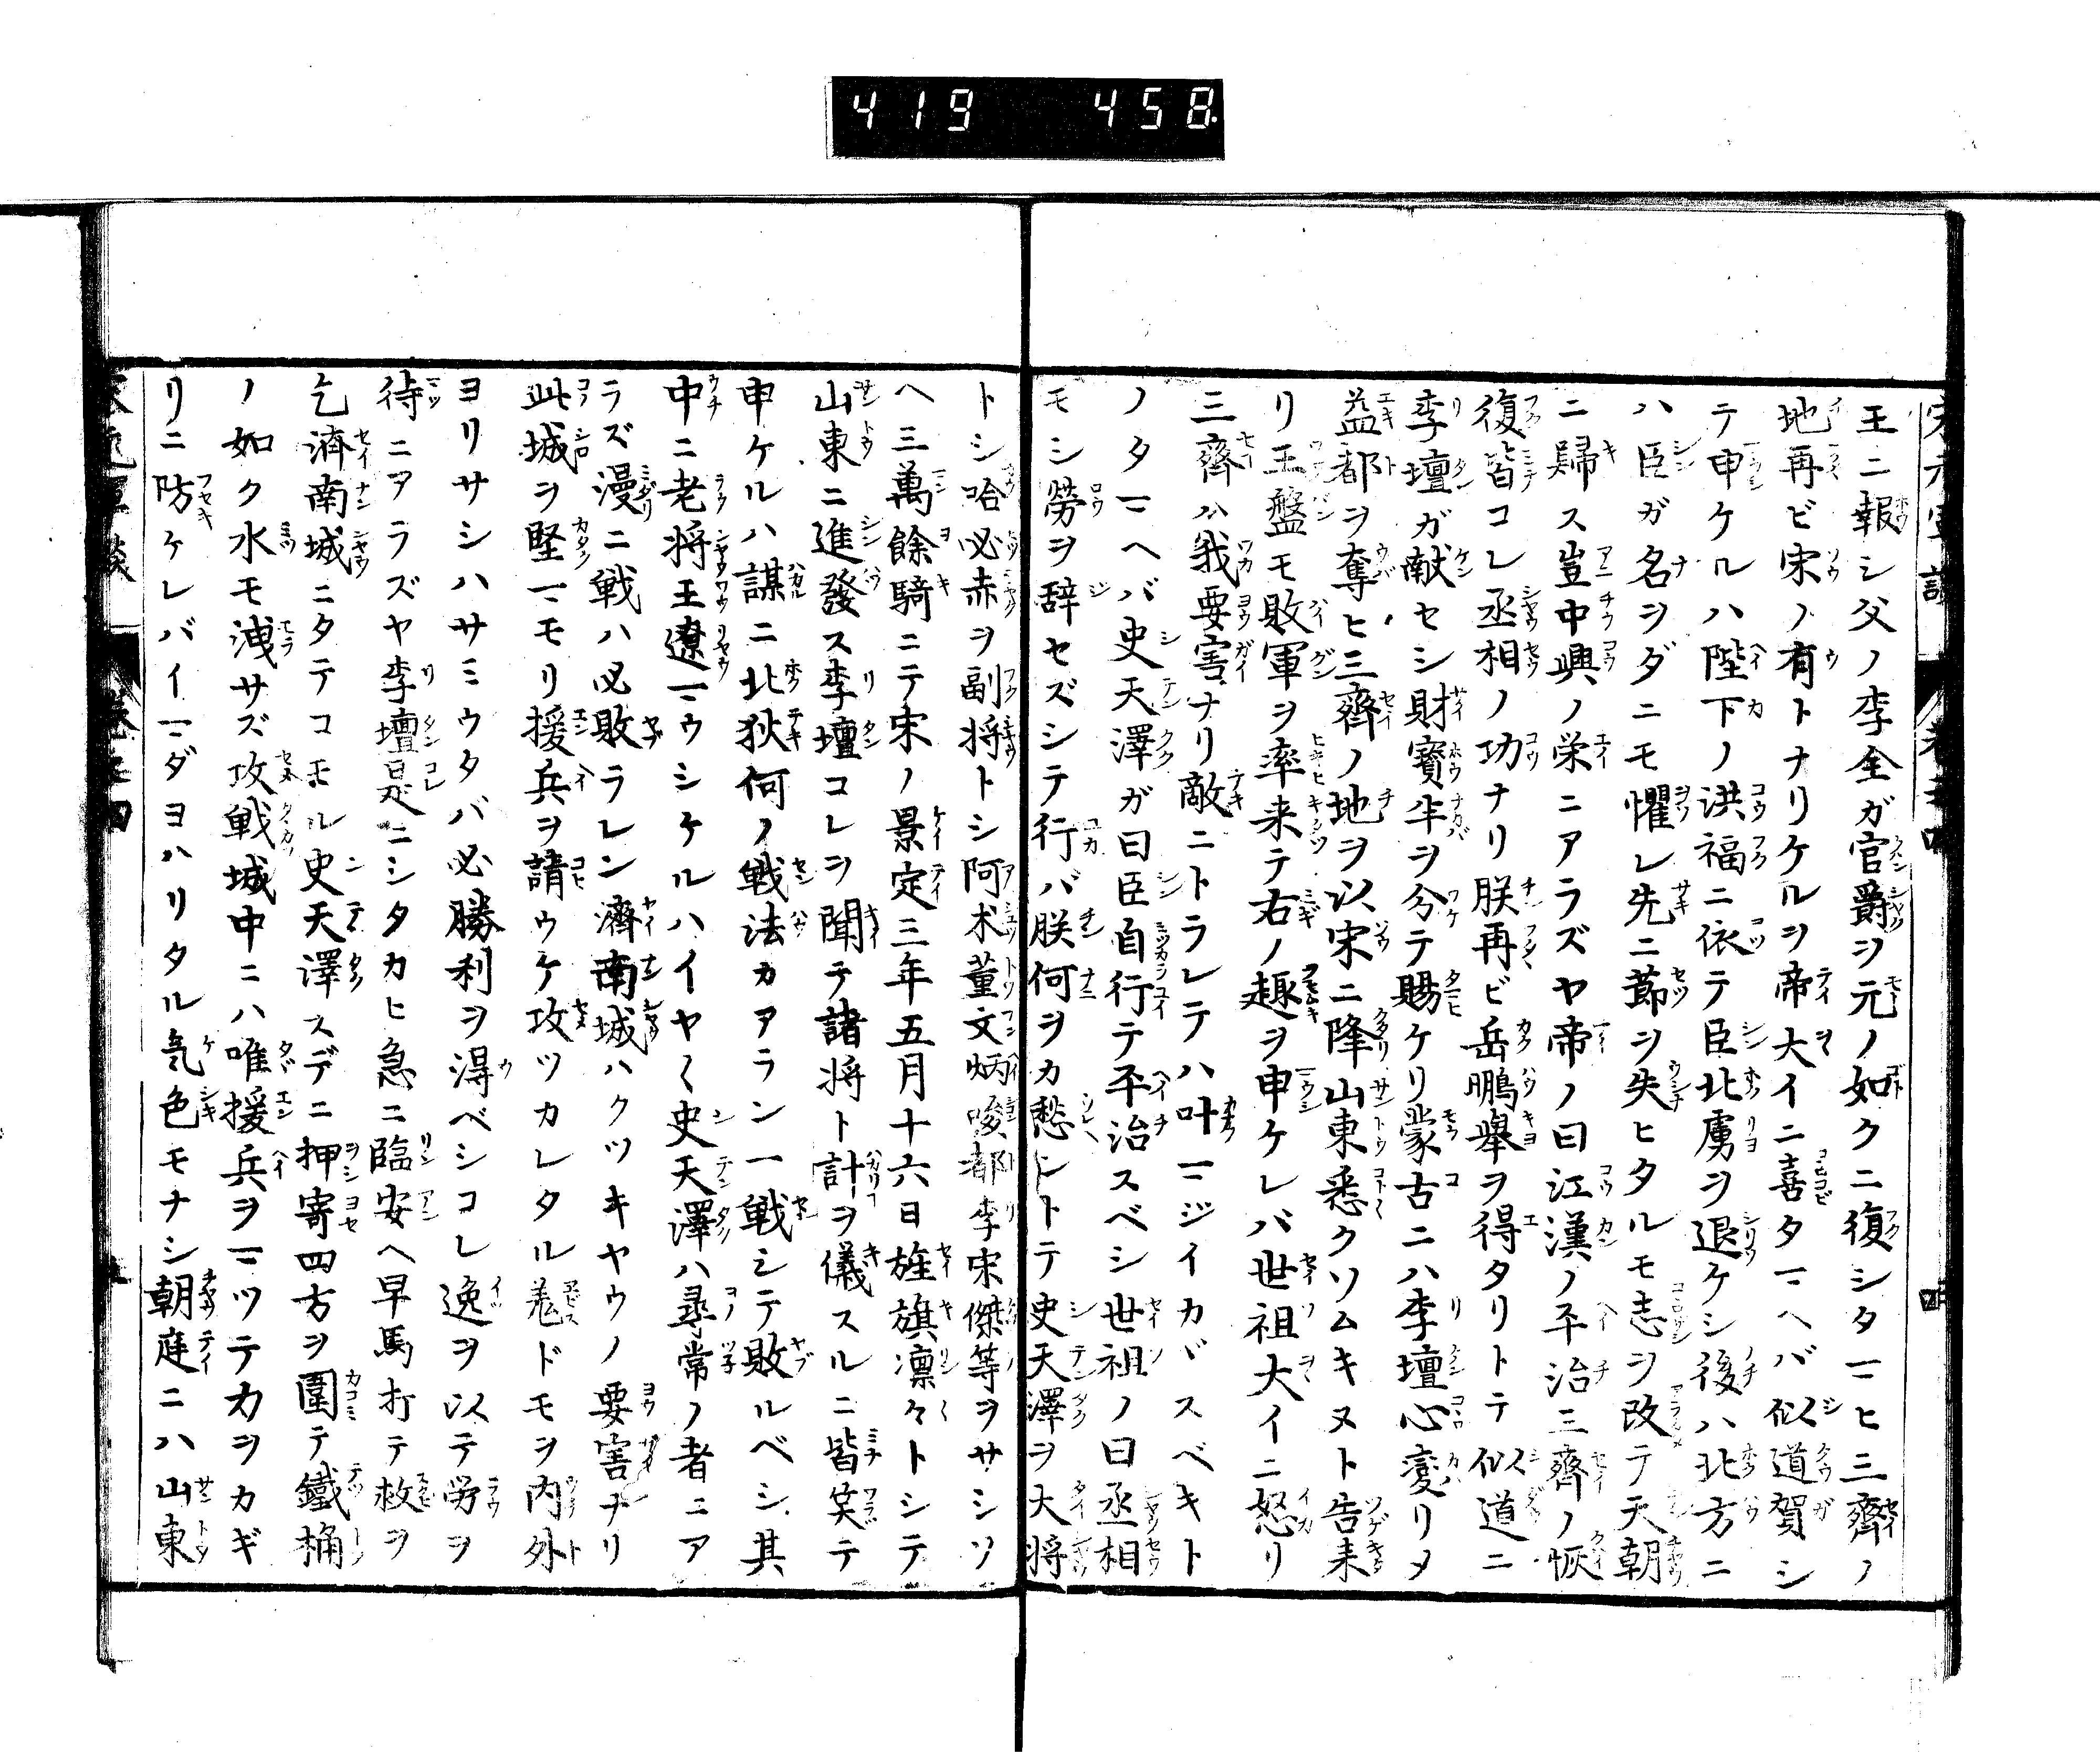 419 458
王ニ報シ父ノ李全ガ官爵ヲ元ノ如クニ復シタマヒ三齊ノ
地再ビ宋ノ有トナリケルヲ帝大イニ喜タマヘバ似道賀シ
テ申ケルハ陛下ノ洪福ニ依テ臣北虜ヲ退ケシ後ハ北方ニ
ハ臣ガ名ヲダニモ懼レ先ニ節ヲ失ヒタルモ志ヲ改テ天朝
ニ歸ス豈中興ノ栄ニアラズヤ帝ノ曰江漢ノ平治三齊ノ恢
復皆コレ丞相ノ功ナリ朕再ビ岳鵬舉ヲ得タリトテ似道ニ
李壇ガ献セシ財寳半ヲ分テ賜ケリ蒙古ニハ李壇心変リタ
益都ヲ奪ヒ三齊ノ地ヲ以宋ニ降山東悉クソムキヌト告来
リ王盤モ敗軍ヲ率来テ右ノ趣ヲ申ケレバ世祖大イニ怒リ
三齊ハ我要害ナリ敵ニトラレテハ叶マジイカヾスベキト
ノタマヘバ史天澤ガ曰臣自行テ平治スベシ世祖ノ曰丞相
モシ勞ヲ辞セズシテ行バ朕何ヲカ愁ントテ史天澤ヲ大将
トシ哈必赤ヲ副将トシ阿术董文炳唆都李宋傑等ヲサシソ
ヘ三萬餘騎ニテ宋ノ景定三年五月十六日旌旗凛々トシテ
山東ニ進發ス李壇コレヲ聞テ諸将ト計ヲ儀スルニ皆笑テ
申ケルハ謀ニ北狄何ノ戦法カアラン一戦シテ敗ルベシ其
中ニ老将王遼マウシケルハイヤ〱史天澤ハ尋常ノ者ニア
ラズ漫ニ戦ハ必敗ラレン濟南城ハクツキヤウノ要害ナリ
此城ヲ堅マモリ援兵ヲ請ウケ攻ツカレタル羗ドモヲ内外
ヨリサシハサミウタバ必勝利ヲ得ベシコレ逸ヲ以テ労ヲ
待ニアラズヤ李壇是ニシタカヒ急ニ臨安ヘ早馬打テ救ヲ
乞濟南城ニタテコモル史天澤スデニ押寄四方ヲ圍テ鐵桶
ノ如ク水モ洩サズ攻戦城中ニハ唯援兵ヲマツテ力ヲカギ
リニ防ケレバイマダヨハリタル気色モナシ朝庭ニハ山東